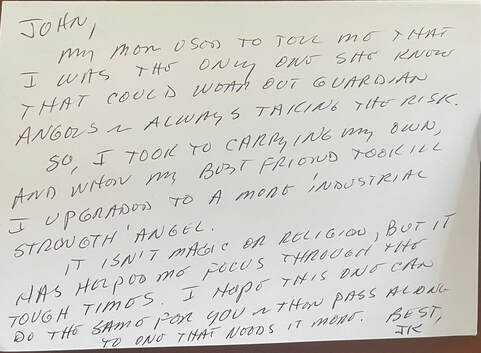 JOHN,
MY MOM USED TO TELL ME THAT
I WAS THE ONLY ONE SHE KNEW
THAT COULD WEAR OUT GUARDIAN
ANGELS ~ ALWAYS TAKING THE RISK.
SO, I TOOK TO CARRYING MY OWN,
AND WHEN MY BEST FRIEND TOOK ILL
I UPGRADED TO A MORE 'INDUSTRIAL
STRENGTH' ANGEL.
IT ISN'T MAGIC OR RELIGION, BUT IT
HAS HELPED ME FOCUS THROUGH THE
TOUGH TIMES. I HOPE THIS ONE CAN
DO THE SAME FOR YOU ~ THEN PASS ALONG
TO ONE THAT NEEDS IT MORE. BEST,
JK